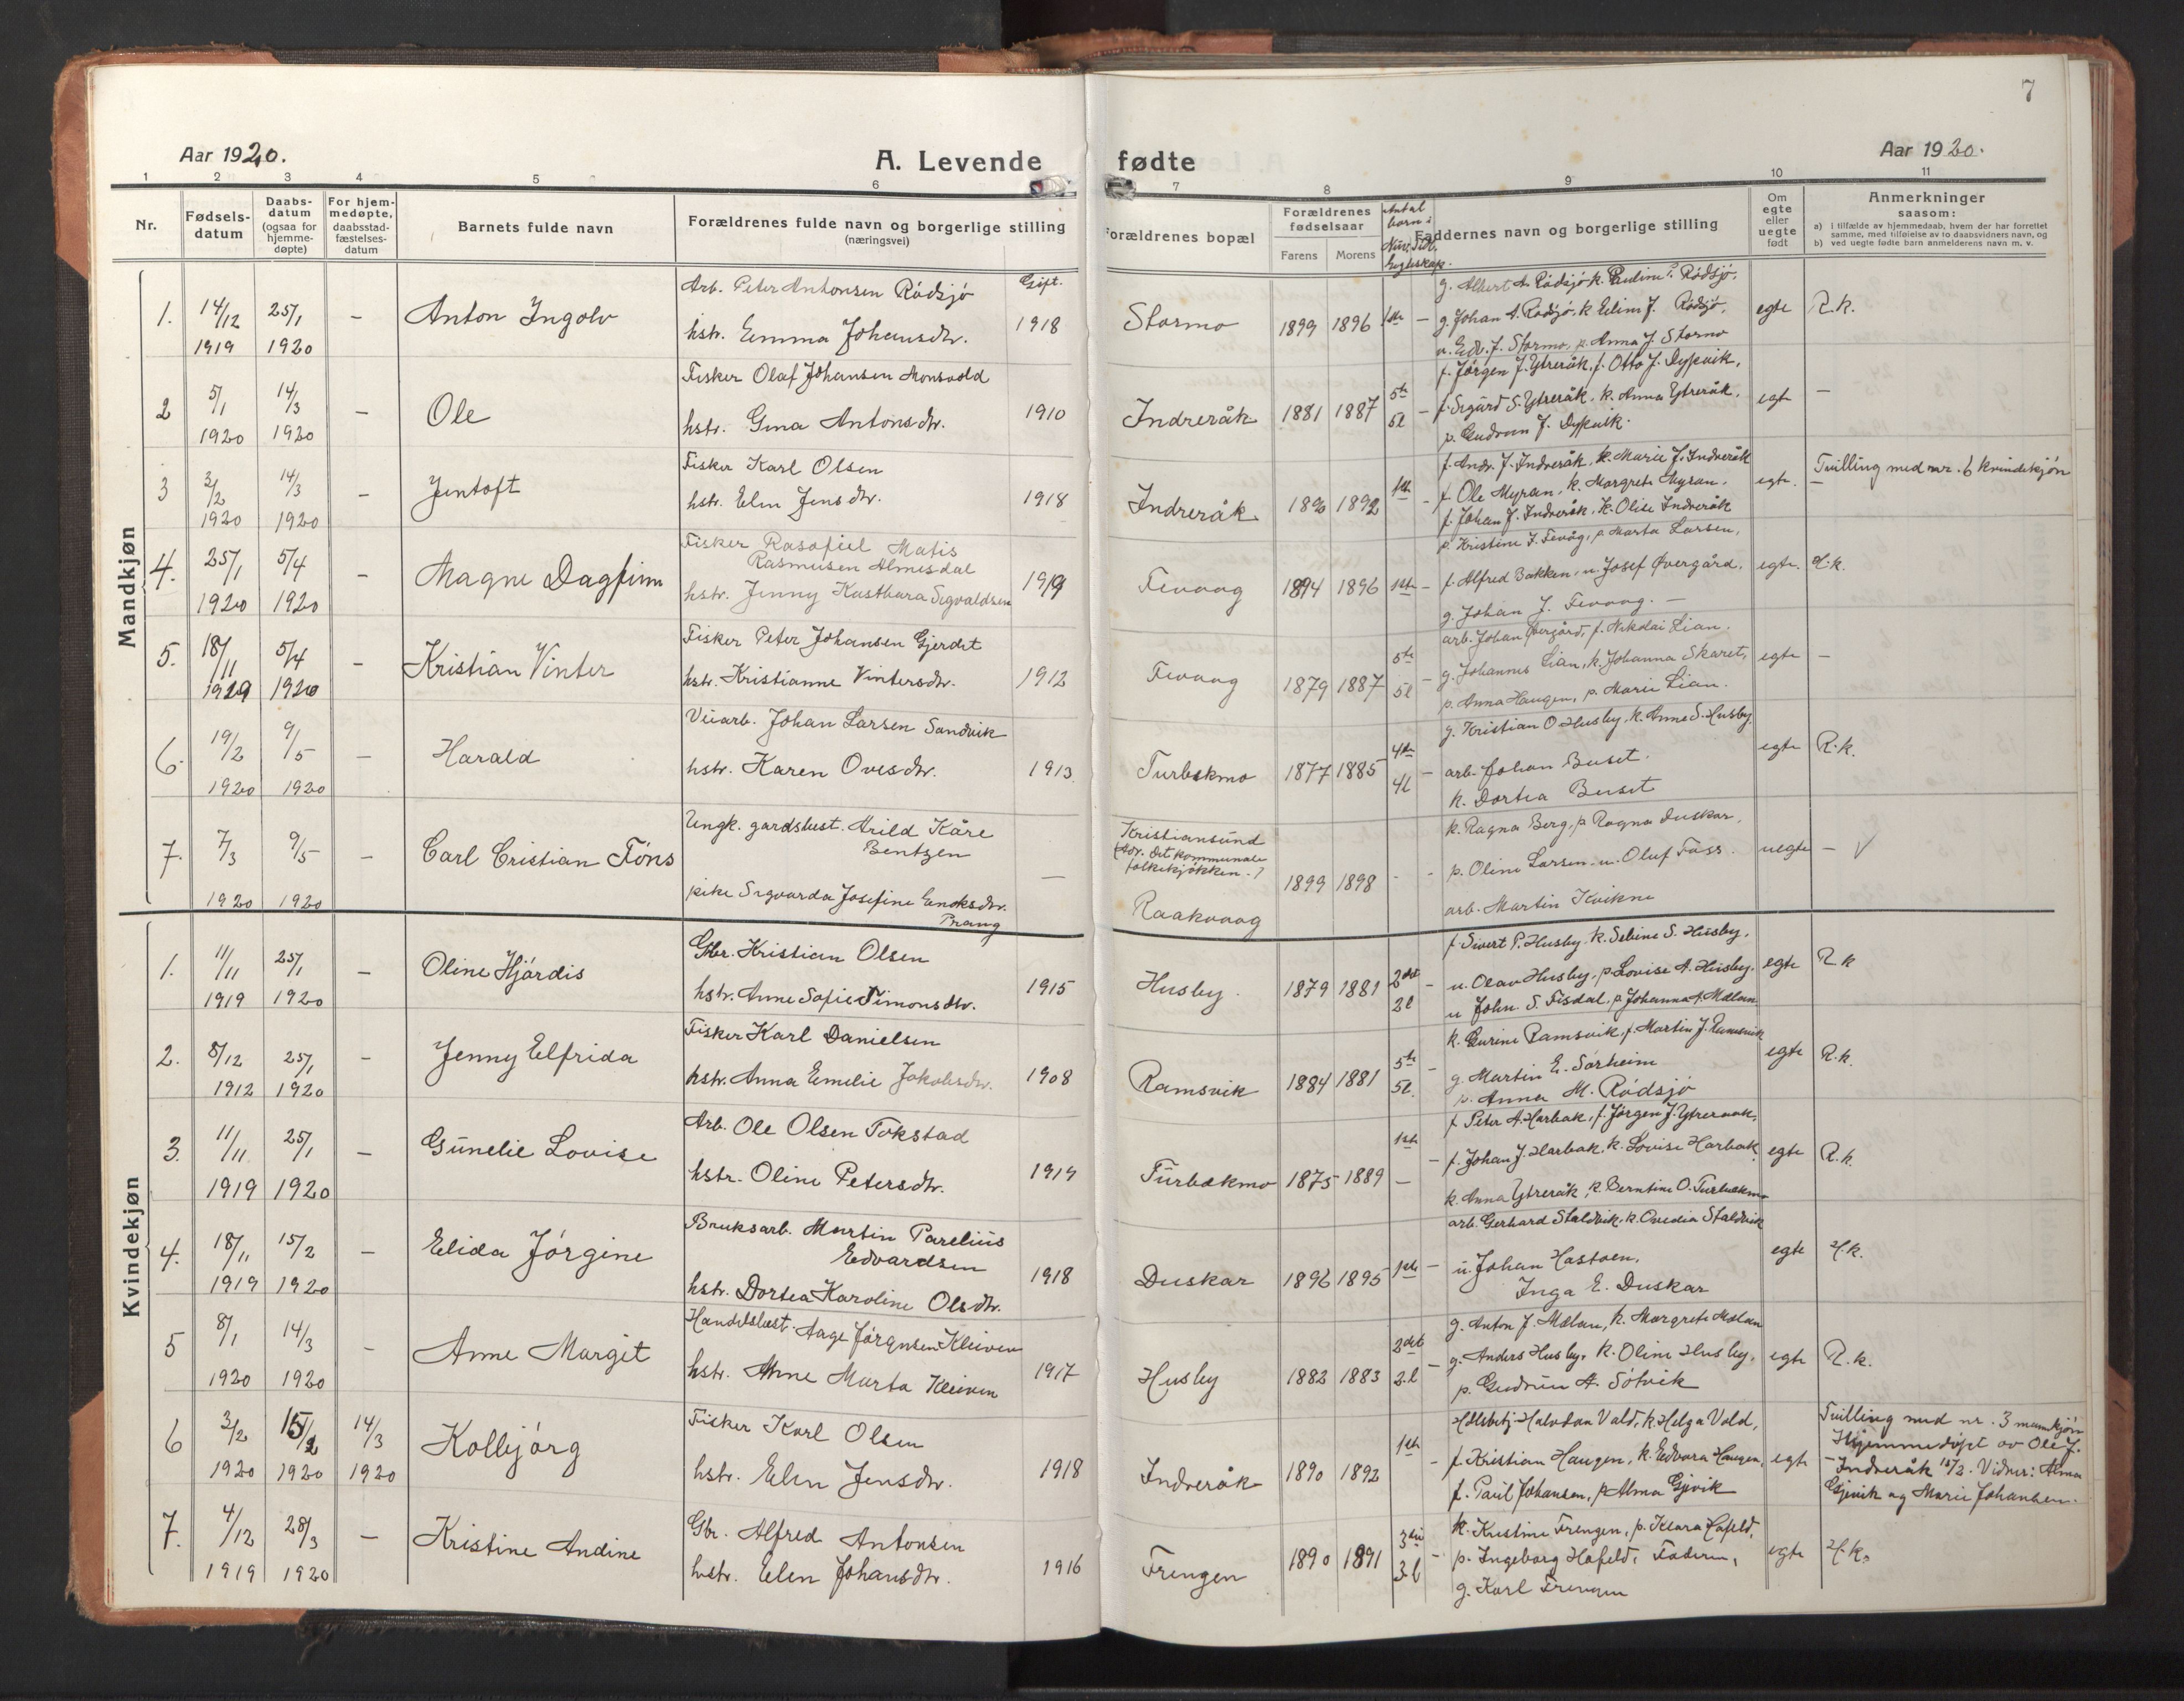 7
Aar 1920.
A. Levende fødte
Aar 1920.
1 2 3 4 5 6 7 8 9 10 11
Nr.
Fødsels-
datum
Daabs-
datum
(ogsaa for
hjemme-
døpte)
For hjem-
medøpte,
daabsstad-
fæstelses-
datum
Barnets fulde navn
Forældrenes fulde navn og borgerlige stilling
(næringsvei)
Forældrenes bopæl
Forældrenes
fødselsaar
Farens Morens
Antal
barn i
Egteskap.
Faddernes navn og borgerlige stilling
Om
egte
eller
uegte
født
Anmerkninger
saasom:
a) i tilfælde av hjemmedaab, hvem der har forrettet
samme, med tilføielse av to daabsvidners navn, og
b) ved uegte fødte barn anmelderens navn m. v.
Mandkjøn
Gift.
1. 14/12 1919 25/1 1920 – Anton Ingolv
Arb. Peter Antonsen Rödsjö
hstr. Emma Johansdtr. 1918
Stormo 1899 1896 1ste –
g. Albert A. Rödsjö, k. Pauline P. Rödsjö,
g. Johan A. Rödsjö, k. Elim J. Rödsjö,
u. Edv. J. Stormo, p. Anna J. Stormo
egte R.k.
2 5/1 1920 14/3 1920 – Ole
Fisker Olaf Johansen Monsvold
hstr. Gina Antonsdtr. 1910
Indreråk 1881 1887 5te 5l –
f. Jørgen J. Ytreråk, f. Otto J. Dypvik,
f. Sigurd S. Ytreråk, k. Anna Ytreråk,
p. Gudrun J. Dypvik.
egte –
3 3/2 1920 14/3 1920 – Jentoft
Fisker Karl Olsen
hstr. Elen Jensdtr. 1918
Indreråk 1890 1892 1ste –
f. Andr. J. Indreråk, k. Marie J. Indreråk
f. Ole Myran, k. Margrete Myran,
f. Johan J. Indreråk, k. Olise Indreråk
egte. Tvilling med nr. 6 kvindekjøn
4. 25/1 1920 5/4 1920 – Magne Dagfinn
Fisker Rasafiel Matis
Rasmusen Almesdal
hstr. Jenny Kastbara Sigvaldsen 1919
Fevaag 1894 1896 1ste –
p. Kristine J. Fevåg, p. Marta Larsen,
f. Alfred Bakken, u. Josef Øvergård,
g. Johan J. Fevaag. –
egte. R.k.
5. 18/11 1919 5/4 1920 – Kristian Vinter
Fisker Peter Johansen Gjerdet
hstr. Kristianne Vintersdtr. 1912
Fevaag 1879 1887 5te 5l –
arb. Johan Øvergård, f. Nikolai Lian.
g. Johannes Lian, k. Johanna Skaret,
p. Anna Haugen, p. Marie Lian.
egte –
6. 19/2 1920 9/5 1920 – Harald
Veiarb. Johan Larsen Sandvik
hstr. Karen Ovesdtr. 1913
Turbekmo 1877 1885 4de 4l –
g. Kristian O Husby, k. Anne S. Husby,
arb. Johan Buset.
k. Dortea Buset
egte R.k.
7. 7/3 1920 9/5 1920 – Carl Cristian Föns
Ungk. gardsbest. Arild Kåre
Bentzen
pike Sigvarda Josefine Enoksdtr.
Prang –
Kristiansund
(Adr. Det kommunale
folkekjøkken.)
Raakvaag
1899 1898 - -
k. Ragna Berg, p. Ragna Duskar,
p. Oline Larsen. u. Oluf Fass.
arb. Martin Kvikne
uegte –
Kvindekjøn
1. 11/11 1919 25/1 1920 – Oline Hjördis
Gbr. Kristian Olsen
hstr. Anne Sofie Simonsdtr. 1915
Husby. 1879 1881 2det 2l –
f. Sivert P. Husby, k. Sebine S. Husby,
u. Olav Husby, p. Lovise A. Husby,
u John. S. Fisdal, p. Johanna A. Mælan
egte R.k
2. 8/12 1912 25/1 1920 – Jenny Elfrida
Fisker Karl Danielsen
hstr. Anna Emelie Jakobsdtr. 1908
Ramsvik 1884 1881 5te 5l. –
k. Gurine Ramsvik, f. Martin J. Ramsvik
g. Martin E. Sörheim
p. Anna M. Rödsjö
egte R.k.
3. 11/11 1919 25/1 1920 – Gunelie Lovise
Arb. Ole Olsen Tokstad
hstr. Oline Petersdtr. 1919
Turbekmo 1875 1889 1ste –
f. Peter A. Harbak, f. Jørgen J. Ytreraak,
f. Johan J. Harbak, k. Lovise Harbak,
k. Anna Ytreråk, k. Berntine O. Turbekmo
egte R.k.
4. 18/11 1919 15/2 1920 – Elida Jörgine
Bruksarb. Martin Parelius
Edvardsen
hstr. Dortea Karoline Olsdtr. 1918
Duskar 1896 1895 1ste –
arb. Gerhard Staldvik, k. Ovedia Staldvik
u. Johan Hastoen,
Inga E. Duskar
egte H.k.
5 8/1 1920 14/3 1920 – Anne Margit
Handelsbest. Aage Jörgensen Kleiven
hstr. Anne Marta Kleiven 1917
Husby 1882 1883 2det 2l –
g. Anton J. Mælan, k. Margrete Mælan
g. Anders Husby, k. Oline Husby,
p. Gudrun A. Sötvik
egte R.k.
6 3/2 1920 15/2 1920 14/3 1920 Kolbjörg
Fisker Karl Olsen
hstr. Elen Jensdtr. 1918
Indreråk 1890 1892 1ste –
Hdlsbetj. Halvdan Vold, k. Helga Vold,
f. Kristian Haugen, k. Edvara Haugen,
f. Paul Johansen, p. Alma Gjevik
egte
Tvilling med nr. 3 mannkjøn
Hjemmedöpt av Ole J.
Indreråk 15/2. Vidner: Alma
Gjevik og Marie Johansen.
7. 4/12 1919 28/3 1920 – Kristine Andine
Gbr. Alfred Antonsen
hstr. Elen Johansdtr. 1916
Frengen 1890 1891 3die 3l –
k. Kristine Frengen, p. Klara Hafeld,
p. Ingeborg Hafeld, Faderen,
g. Karl Frengen
egte H.k.